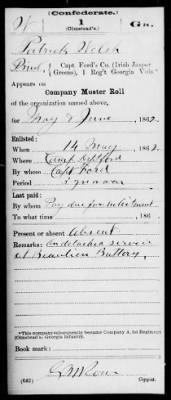 (Confederate.)
W 1 Ga.
(Olmstead's.)
Patrick Welsh
Priv, Capt. Ford's Co. (Irish Jasper
Greens), 1 Reg't Georgia Vols.*
Appears on
Company Muster Roll
of the organization named above,
for May & June, 1862.
Enlisted:
When 14 May, 1862.
Where Camp
By whom Capt Ford
Period
Last paid:
By whom Pay due for enlistment
To what time , 186
Present or absent Absent
Remarks: On detached service
at Beaulieu Battery
*This company subsequently became Company A, 1st Regiment
(Olmstead's) Georgia Infantry.
Book mark:
(642) Copyist.